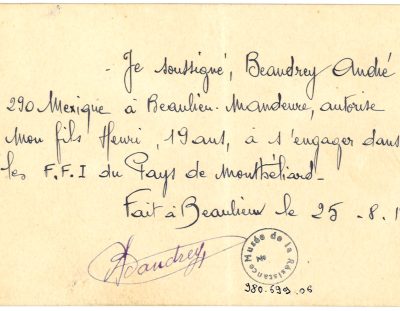 - Je soussigné, Beaudrey André
290 Mexique à Beaulieu-Mandeure, autorise
mon fils Henri, 19 ans, à s'engager dans
les F.F.I du Pays de Montbéliard-
Fait à Beaulieu le 25 -8.1
ABaudrey
Musée de la Résistance
No
980.699.06